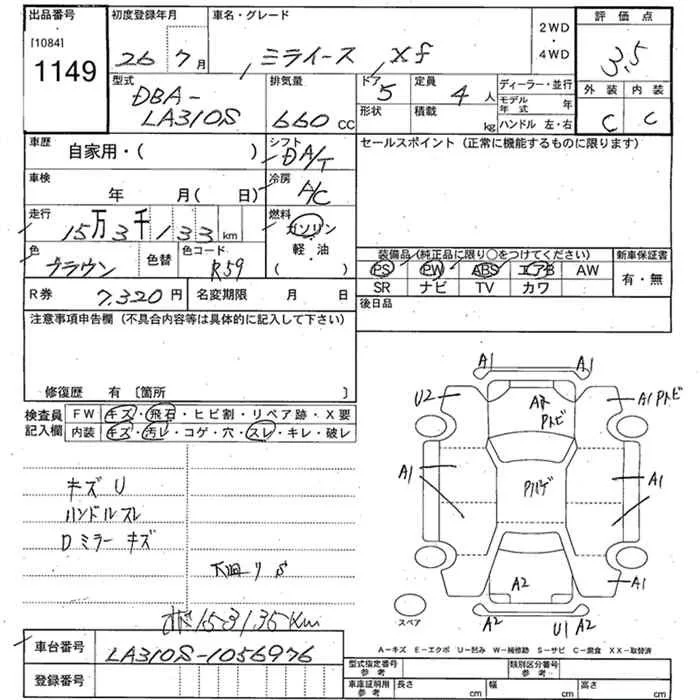 出品番号
[1084]
1149
初度登録年月
26 7月
車名・グレード
ミライース Xf
2WD
・
4WD
評価点
3.5
外装 内装
C C
型式
DBA-
LA310S
排気量
660 CC
ドア 5
形状
定員 4人
積載 kg
ディーラー・並行
モデル年式 年
ハンドル 左・右
車歴 自家用・( )
シフト DA/T
車検 年 月( 日)
冷房 A/C
走行 15万3千133km
燃料
ガソリン
・
軽・油
( )
色 ブラウン
色替
色コード R59
R券 7,320円
名変期限 月 日
セールスポイント (正常に機能するものに限ります)
装備品 (純正品に限り○をつけてください)
PS PW ABS エアB AW
SR ナビ TV カワ
新車保証書
有・無
後日品
注意事項申告欄 (不具合内容等は具体的に記入して下さい)
修復歴 有 [箇所 ]
検査員記入欄
FW キズ・飛石・ヒビ割・リペア跡・X要
内装 キズ・汚レ・コゲ・穴・スレ・キレ・破レ
キズ U
ハンドルスレ
Dミラー キズ
下回りS
153135Km
A1 A1
U2
Aア
Pトビ
A1Pトビ
A1
Pハゲ
A1
A1
A2
A2
U1 A2
スペア
A-キズ E-エクボ U-凹み W-補修跡 S-サビ C-腐食 XX-取替済
車台番号 LA310S-1056976
登録番号
型式指定番号
参考
類別区分番号
参考
車庫証明用
参考
長さ cm
幅 cm
高さ cm